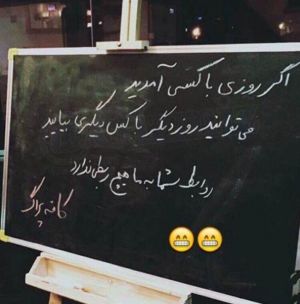 اگر روزی با کسی آمدید
می توانید روز دیگر با کس دیگری بیایید
روابط شما به ما هیچ ربطی ندارد
کافه پراگ